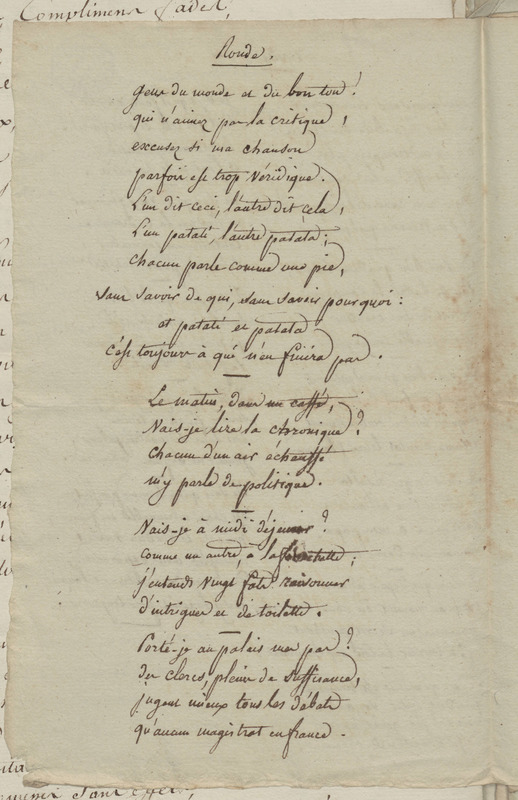 Compliment Cadet,
Ronde.
Gens du monde et du bon ton!
qui n'aimez pas la critique,
excusez si ma chanson
parfois est trop véridique.
L'un dit ceci, l'autre dit cela,
L'un patati, l'autre patata;
chacun parle comme une pie,
sans savoir de qui, sans savoir pourquoi:
et patati et patata
c'est toujours à qui n'en finira pas.
Le matin, dans un caffé,
Vais-je lire la chronique?
chacun d'un air échauffé
m'y parle de politique.
Vais-je à midi déjeuner?
comme un autre, à la fourchette;
j'entends vingt fats raisonner
d'intrigues et de toilette.
Porté-je au palais mes pas?
des clercs, pleins de suffisance,
jugent mieux tous les débats
qu'aucun magistrat en france.